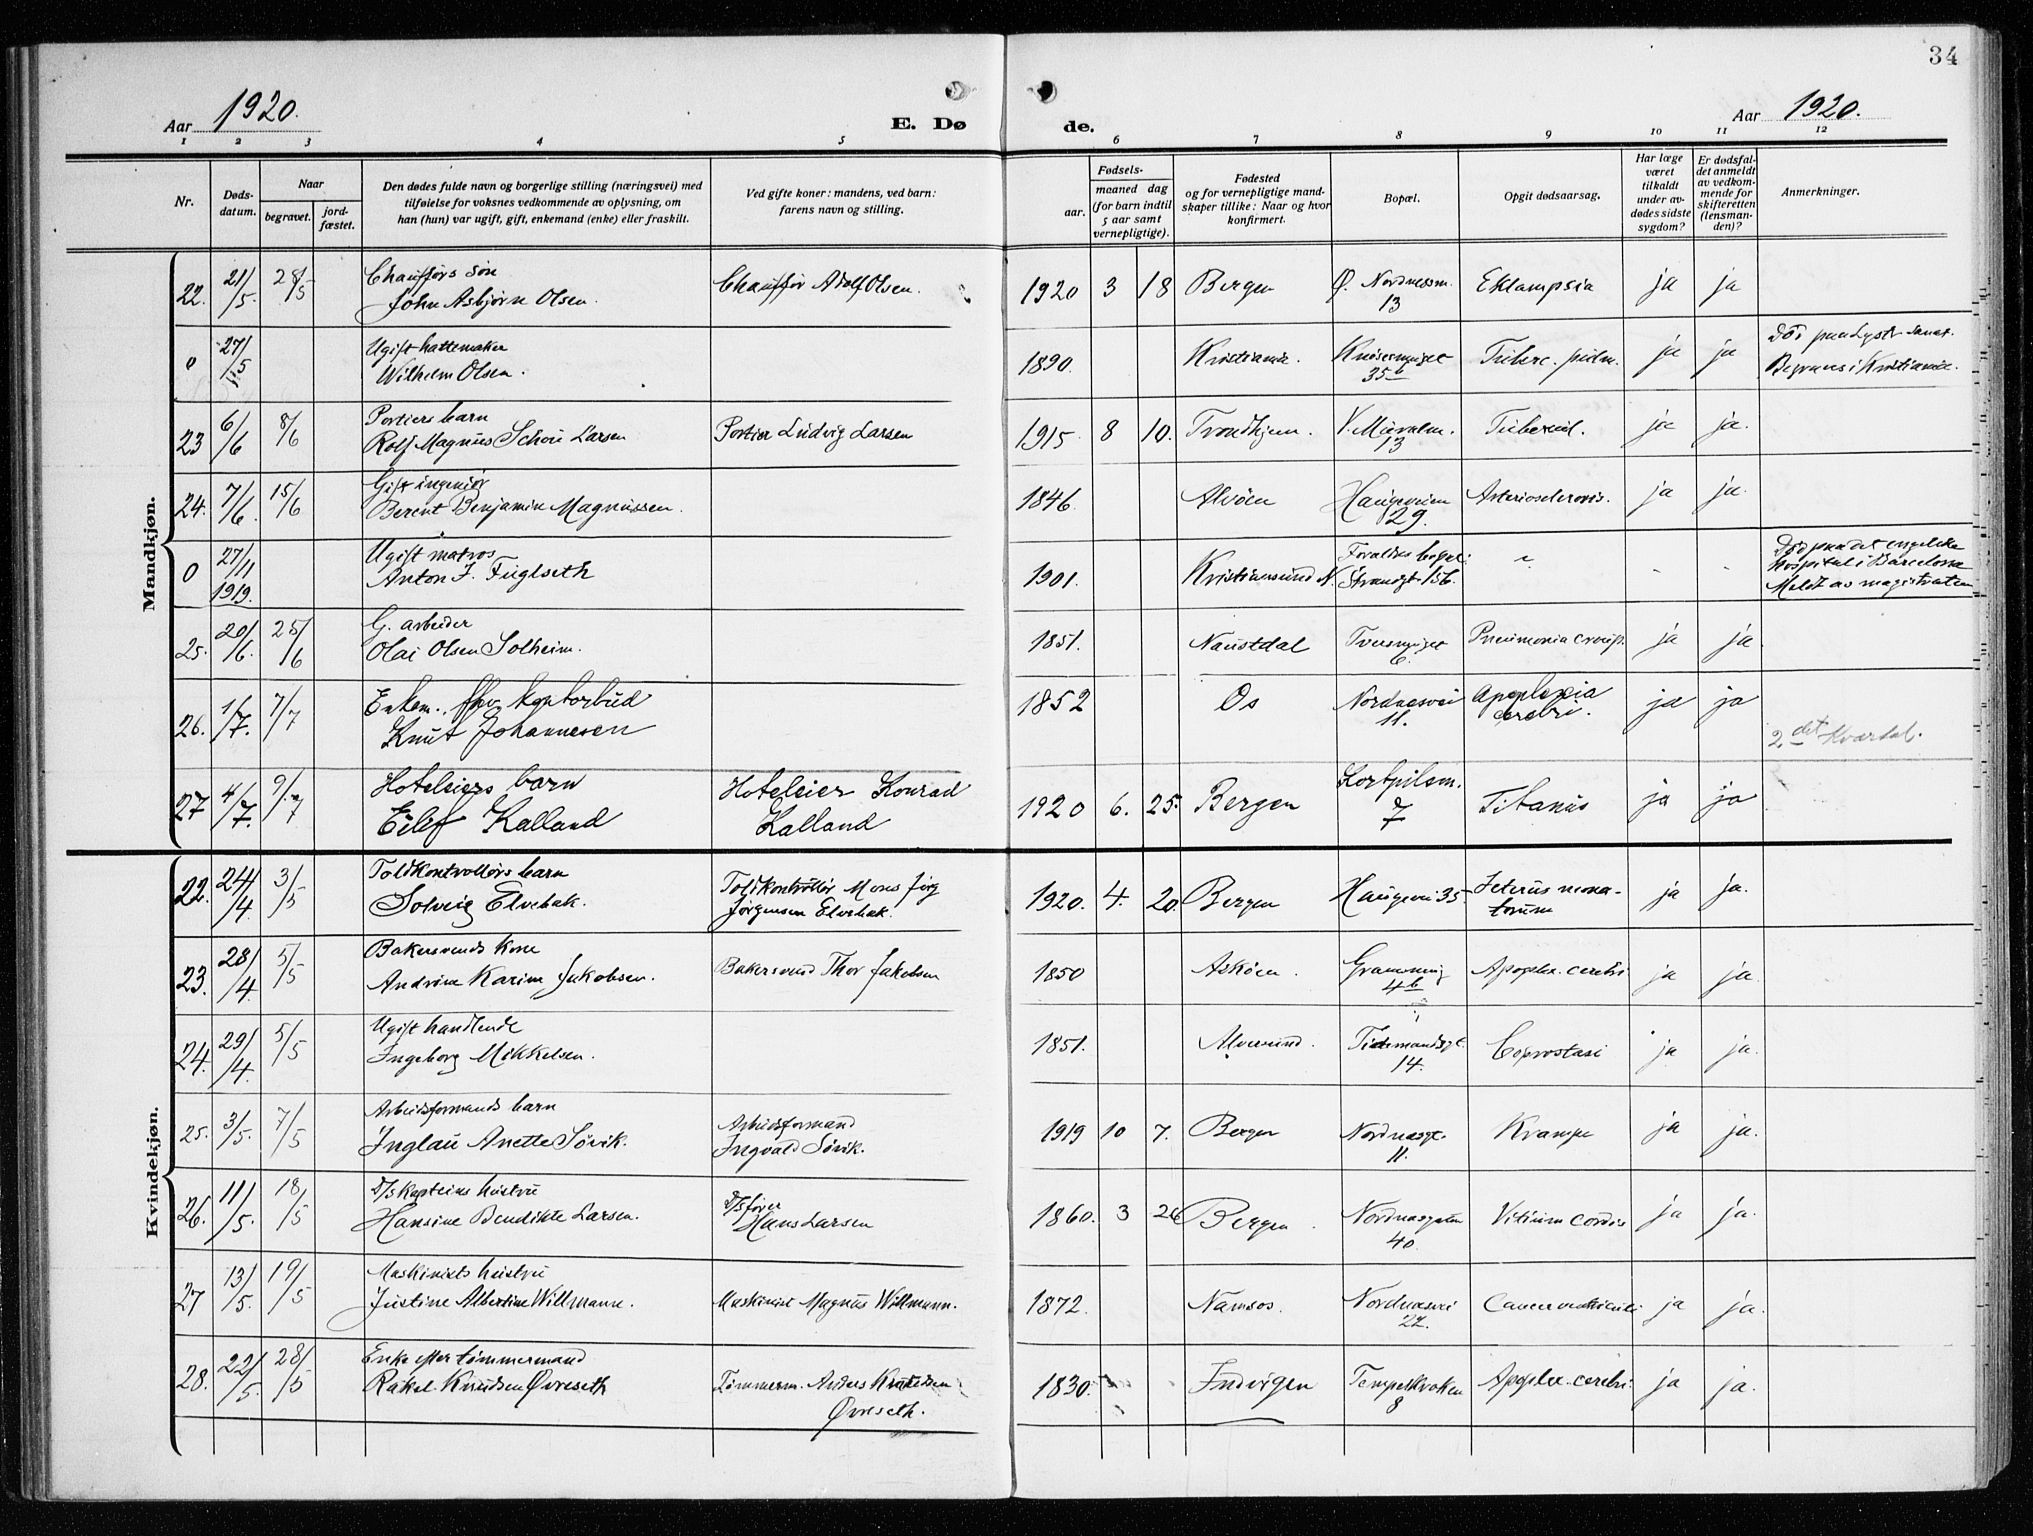 34
Aar 1920.
E. Dø
de.
Aar 1920.
1 2 3 4 5 6 7 8 9 10 11 12
Nr.
Døds-
datum.
Naar
begravet.
jord-
fæstet.
Den dødes fulde navn og borgerlige stilling (næringsvei) med
tilføielse for voksnes vedkommende av oplysning, om
han (hun) var ugift, gift, enkemand (enke) eller fraskilt.
Ved gifte koner: mandens, ved barn:
farens navn og stilling.
Fødsels-
aar.
maaned dag
(for barn indtil
5 aar samt
vernepligtige).
Fødested
og for vernepligtige mand-
skaper tillike: Naar og hvor
konfirmert.
Bopæl.
Opgit dødsaarsag.
Har læge
været
tilkaldt
under av-
dødes sidste
sygdom?
Er dødsfal-
det anmeldt
av vedkom-
mende for
skifteretten
(lensman-
den)?
Anmerkninger.
Mandkjøn.
22. 21/5. 28/5 Chaufførs søn
John Asbjørn Olsen. Chauffør Adolf Olsen. 1920 3 18 Bergen Ø. Nordnessm.
13 Eklampsia ja ja
0 27/5 Ugift hattemaker
Wilhelm Olsen. 1890. Kristiania. 35b Tuberc. pulm. ja ja Død paa Lyster sanat.
Begraves i Kristiania.
23 6/6 8/6 Portiers barn
Rolf Magnus Schou Larsen Portier Ludvig Larsen 1915. 8 10. Trondhjem. V. Muralm.
13 Tubercul. ja ja.
24. 7/6. 15/6 Gift ingeniør
Berent Benjamin Magnussen. 1846. Alvöen Haugeveien
29. Arteriosclerosis. ja ja.
0 27/11
1919. Ugift matros
Anton J. Fuglseth 1901. Kristiansund N. Forældres bopæl:
Strandgt 156. " - - Død paa det engelske
hospital i Barcelona
Meldt av magistraten
25. 20/6. 25/6 G. arbeider
Olai Olsen Solheim. 1851. Naustdal Tversmuget
6. Pneumonia croup. ja ja.
26. 1/7. 7/7 Enkem. fhv. kontorbud
Knut Johannesen 1852 Os Nordnesvei
11. Apoplexia
cerebri. ja ja
2det Kvartal.
27 4/7. 9/7 Hoteleiers barn
Eilef Kalland Hoteleier Konrad
Kalland 1920 6. 25. Bergen Lortpilsm.
7 Titanus ja ja
Kvindekjøn.
22. 24/4 3/5 Toldkontrollørs barn
Solveig Elvebak. Toldkontrollør Mons Jørg
Jørgensen Elvebak. 1920. 4. 20. Bergen Haugevei 35 Icterus neona-
torum ja ja.
23. 28/4. 5/5 Bakersvends kone
Andrine Karine Jakobsen. Bakersvend Thor Jakobsen 1850 Askøen.
4b Apoplex. cerebri ja ja.
24. 29/4. 5/5 Ugift handlende
Ingeborg Mikkelsen. 1851. Alversund. Tidemandsgt.
14. Coprostasi ja ja.
25. 3/5. 7/5 Arbeidsformands barn
Inglau Anette Søvik. Arbeidsformand
Ingvald Søvik. 1919 10 7. Bergen Nordnesgt.
11. Krampe ja ja.
26. 11/5. 18/5 D/s kapteins hustru
Hansine Bendikte Larsen. D/s fører
Hans Larsen 1860. 3 26 Bergen. Nordnesgaten
40. Vitium cordis ja ja.
27 13/5. 19/5 Maskinists hustru
Justine Albertine Willmann. Maskinist Magnus Willmann. 1872. Namsos. Nordnesvei
22. Cancer ventriculi ja ja.
28. 22/5. 28/5 Enke efter tømmermand
Rakel Knudsen Øvreseth Tømmerm. Anders Knudsen
Øvreseth. 1830. Indvigen Tempelkroken
8 Apoplex. cerebri. ja ja.